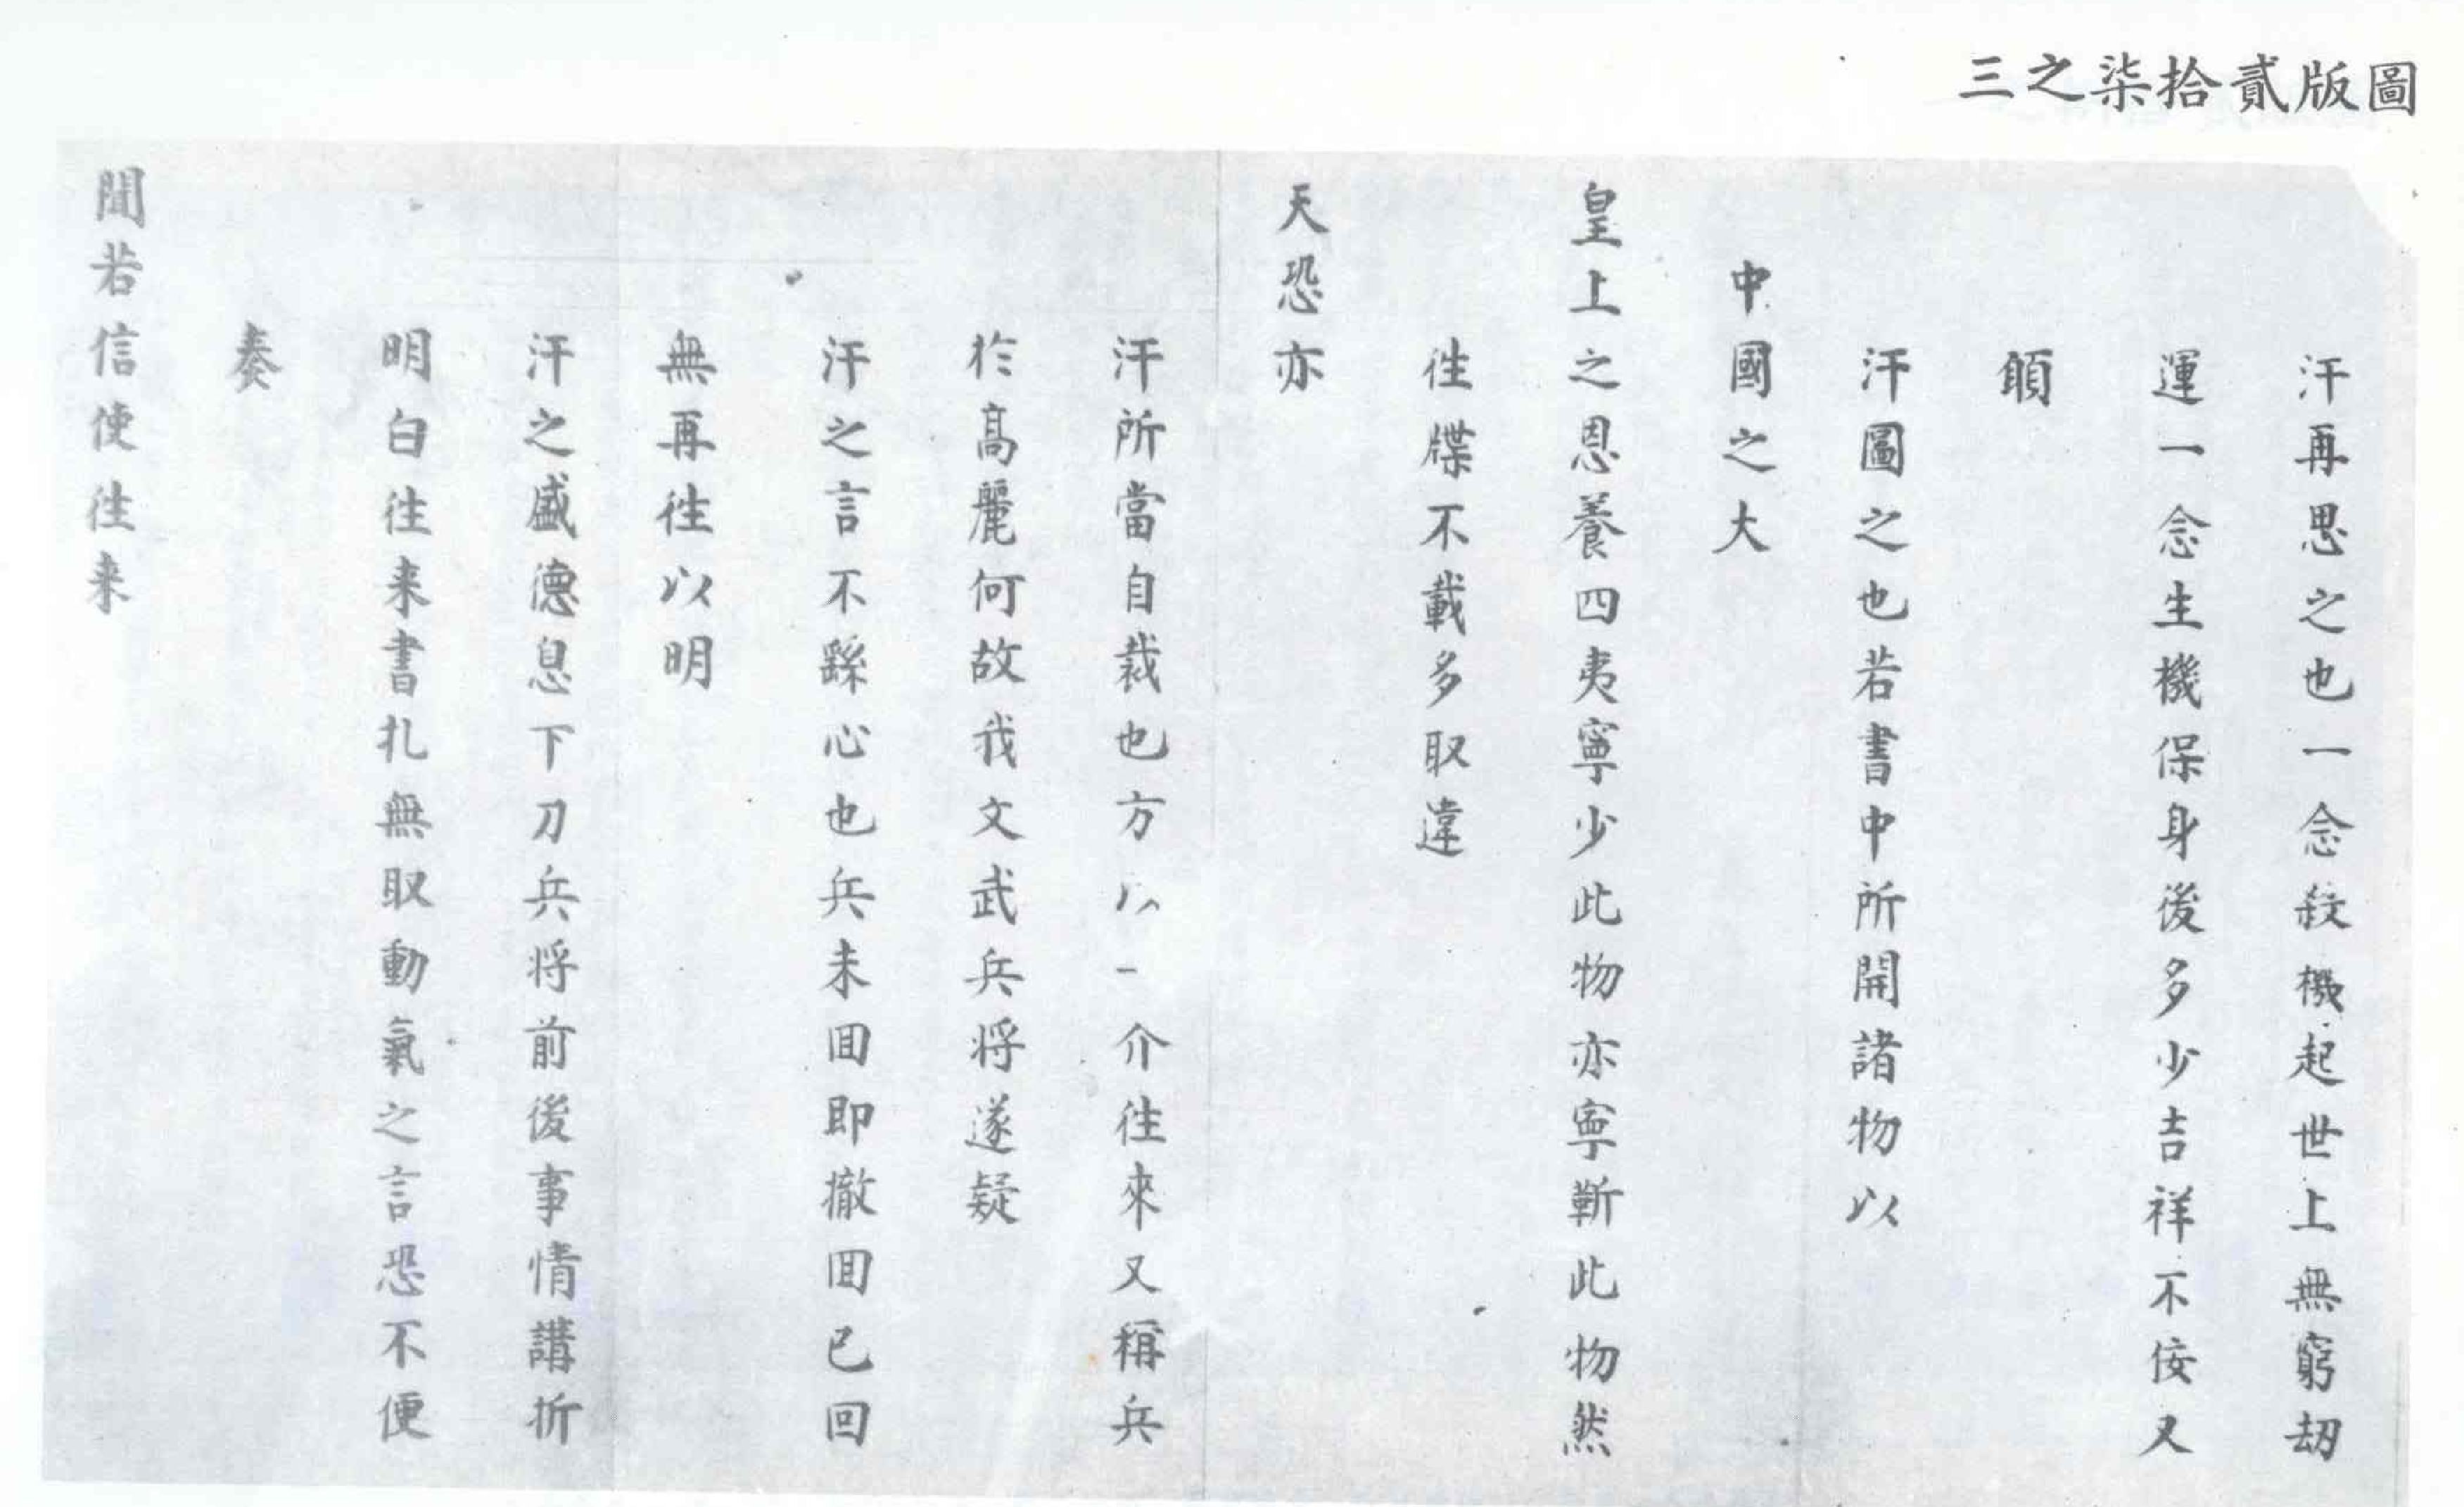 圖版貳拾柒之三
汗再思之也一念殺機起世上無窮劫
運一念生機保身後多少吉祥不佞又
願
汗圖之也若書中所開諸物以
中國之大
皇上之恩養四夷寧少此物亦寧靳此物然
徃牒不載多取違
天恐亦
汗所當自裁也方以一介往來又稱兵
扵高麗何故我文武兵将遂疑
汗之言不繇心也兵未囬即撤囬已回
無再徃以明
汗之盛德息下刀兵将前後事情講折
明白徃来書扎無取動氣之言恐不便
奏
聞若信使徃来